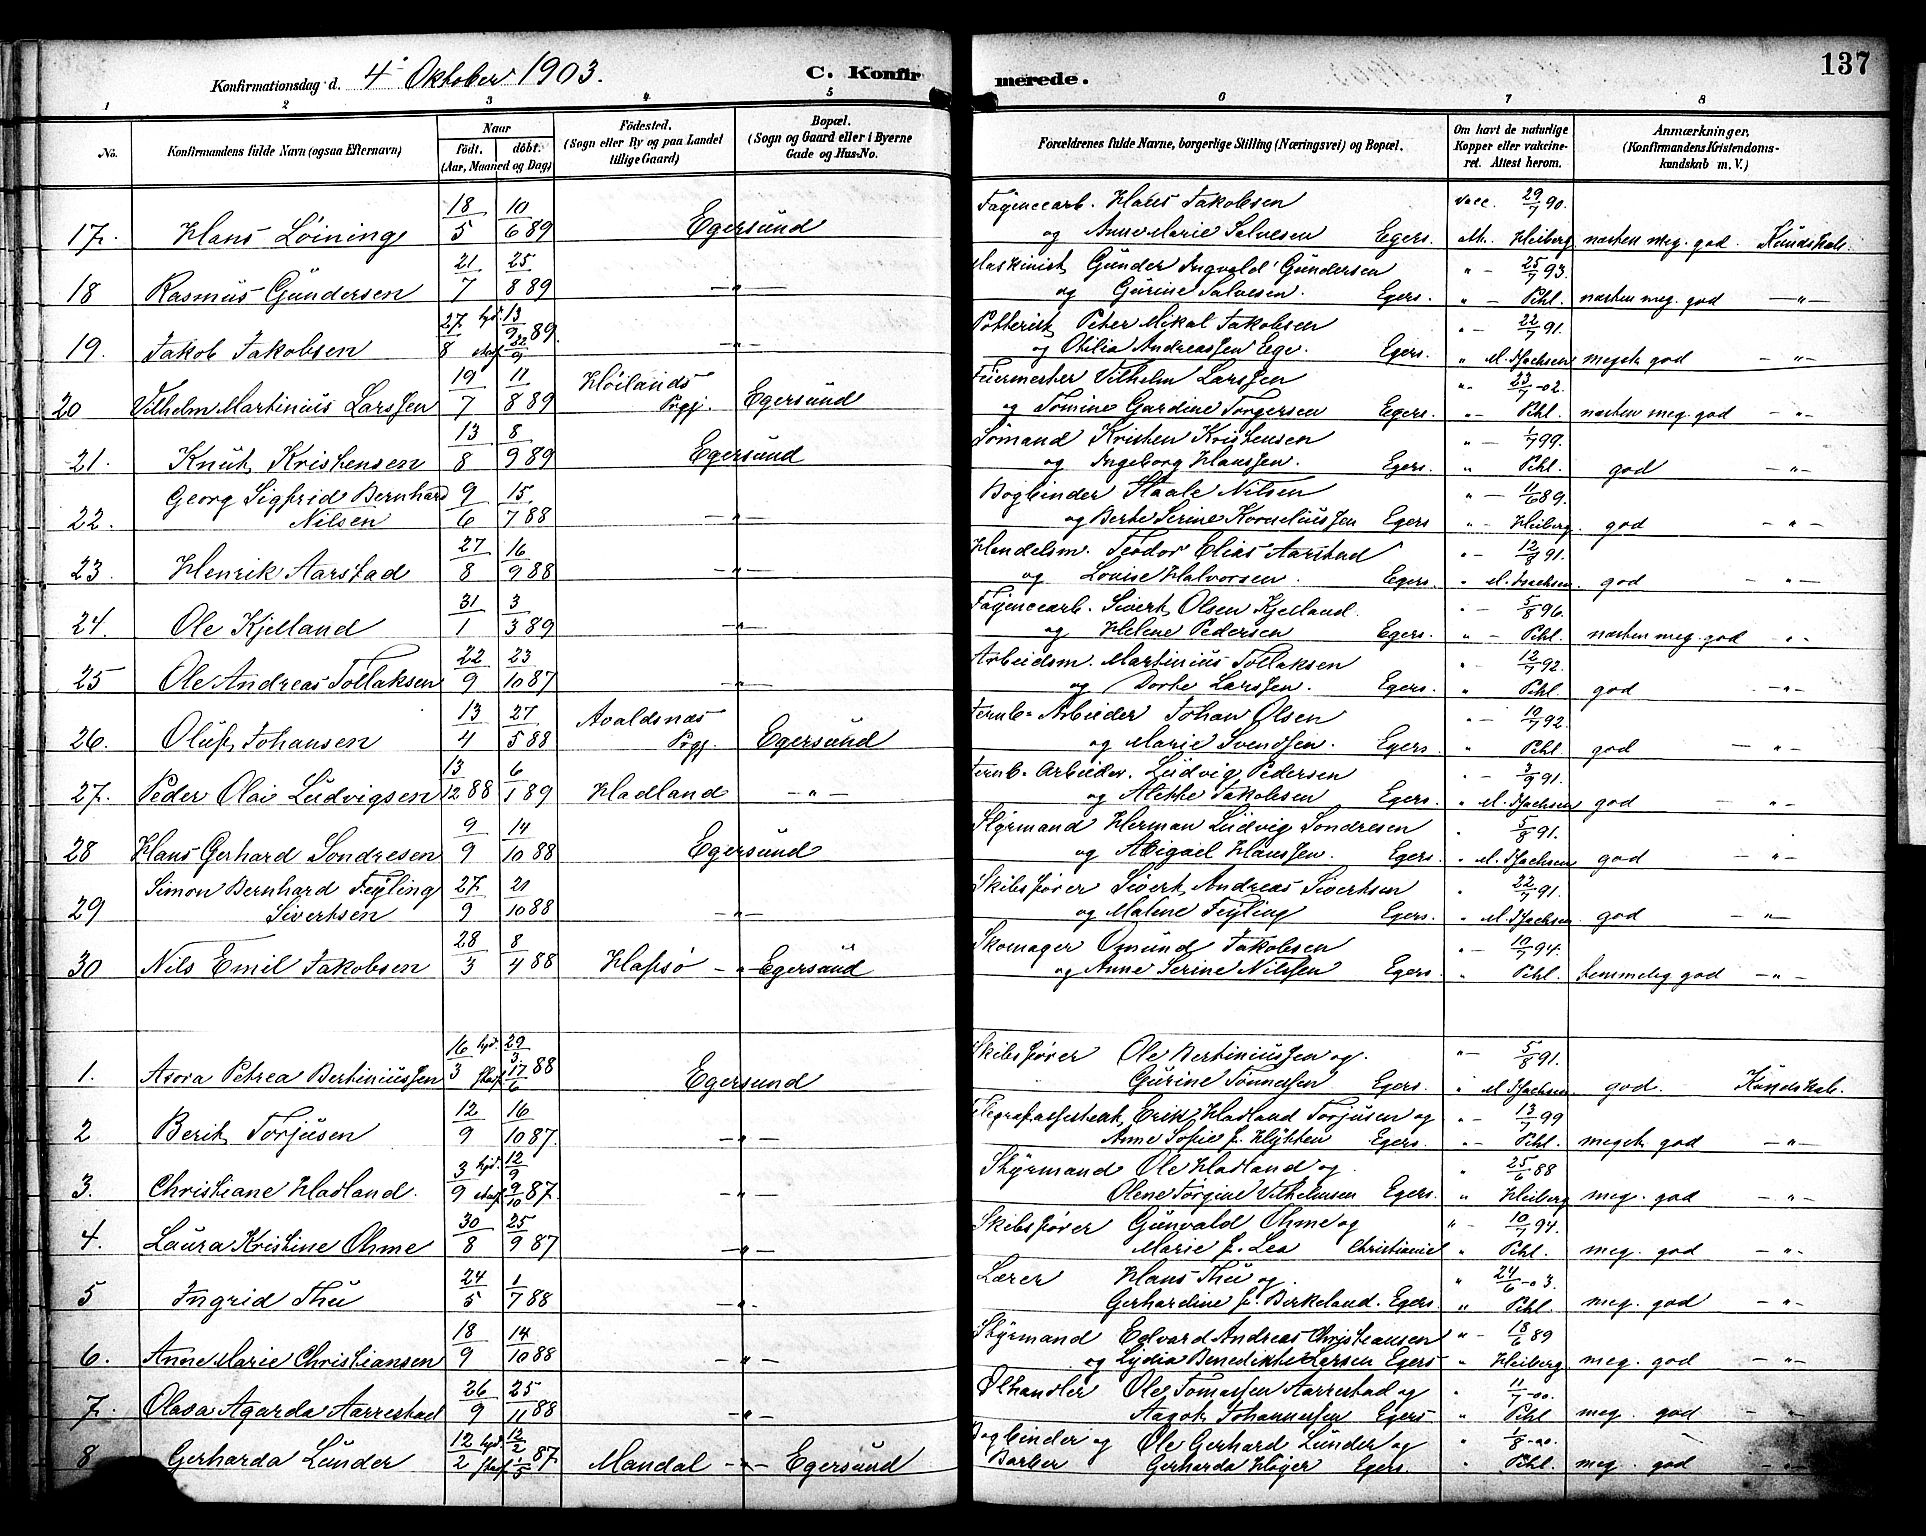 137
Konfirmationsdag d. 4' Oktober 1903. C. Konfirmerede.
1 2 3 4 5 6 7 8
No. Konfirmandens fulde Navn (ogsaa Efternavn) Naar født. døbt. (Aar, Maaned og Dag) Fødested. (Sogn eller By og paa Landet tillige Gaard) Bopæl. (Sogn og Gaard eller i Byerne Gade og Hus-No. Forældrenes fulde Navne, borgerlige Stilling (Næringsvei) og Bopæl. Om havt de naturlige Kopper eller vakcineret. Attest herom. Anmærkninger. (Konfirmandens Kristendomskundskab m. V.)
Fayencearb. Hans Jakobsen vacc. 29/7 90.
17. Hans Løining 18/5 10/6 89 Egersund og Anne Marie Salvesen Egers. At. Heiberg næsten meg. god Kundskab.
Maskinist Gunder Ingvald Gundersen " - 25/7 93.
18 Rasmus Gundersen 21/7 25/8 89 -"- og Gurine Salvesen. Egers. " - Pihl. næsten meg. god -"-
Potterist Peter Mikal Jakobsen " - 22/7 91.
19. Jakob Jakobsen 27/8 hjd. 13/9 89 stadf. 22/9 -"- og Otilia Andreassen Ege. Egers. " M. Isachsen meget god -"-
Feiermester Vilhelm Larssen "- 23/7 -02.
20 Vilhelm Martinius Larssen 19/7 11/8 89 Høilands Prgj. Egersund og Tomine Gardine Torgersen Egers. "- Pihl. næsten meg. god -"-
Sømand Kristen Kristensen " - 1/7 99.
21. Knut Kristensen 13/8 8/9 89 Egersund og Ingeborg Hanssen. Egers. " Pihl. god -"-
Georg Sigfrid Bernhard Bogbinder Staale Nilsen " - 11/6 89.
22. Nilsen 9/6 15/7 88 -"- og Berte Serine Korneliussen Egers "- Heiberg. god -"-
Handelsm. Teodor Elias Aarstad "- 12/8 91.
23. Henrik Aarstad 27/8 16/9 88 -"- og Louise Halvorsen. Egers. " M. Isachsen. god -"-
Fayencearb. Sivert Olsen Kjelland. "- 5/8 96.
24. Ole Kjelland 31/1 3/3 89 -"- og Helene Pedersen Egers. "- Pihl. næsten meg. god "-
Arbeidsm. Martinius Tollaksen "- 12/7 92.
25 Ole Andreas Tollaksen 22/9 23/10 87 -"- og Dorte Larssen. Egers. " Pihl. god -"-
Jernb- Arbeider Johan Olsen "- 19/7 92.
26. Oluf Johansen 13/4 27/5 88 Avaldsnæs Prgj. Egersund og Marie Svendsen. Egers. " Pihl. god -"-
Jernb- Arbeider. Ludvig Pedersen "- 3/9 91.
27. Peder Olai Ludvigsen 13/12 88 6/1 89 Hadland -"- og Alette Jakobsen Egers. " M. Isachsen god -"-
Styrmand Herman Ludvig Sondresen " 5/8 91.
28 Hans Gerhard Sondresen 9/9 14/10 88 Egersund og Abigael Hanssen. Egers. " M. Isachsen god -"-
Simon Bernhard Feyling Skibsfører Sivert Andreas Sivertsen " 22/7 91.
29 Sivertsen 27/9 21/10 88 -"- og Malene Feyling Egers. " M. Isachsen god -"-
Skomager Omund Jakobsen "- 10/7 94.
30 Nils Emil Jakobsen 28/3 8/4 88 Hafsø -"- Egersund og Anne Serine Nilssen Egers " Pihl. temmelig god -"-
Skibsfører Ole Bertiniussen og "- 5/8 91.
1. Asora Petrea Bertiniussen 16/3 hjd. 29/3 88 stadf. 17/6 Egersund Gurine Tønnessen Egers. " M. Isachsen. god. Kundskab.
Telegrafassistent Erik Hadland Torjusen og "- 13/7 99
2 Berit Torjusen 12/9 16/10 87. -"- Anne Sofie f. Hytten Egers. "- Pihl. meget god -"-
Styrmand Ole Hadland og " 25/6 88
3. Christiane Hadland. 3/9 hjd. 12/9 stadf. 9/10 87. -"- Olene Torgine Vilhelmsen Egers. " Heiberg meg. god -"-
Skibsfører Gunvald Ohme og "- 10/7 94.
4. Laura Kristine Ohme 30/8 25/9 87 -"- Marie f. Lea Christiania " Pihl. meg. god -"-
Lærer Hans Thu og " 24/6 -03.
5 Ingrid Thu 24/5 1/7 88 -"- Gerhardine f. Birkeland. Egers " Pihl. meg. god -"-
Styrmand Edvard Andreas Christiansen "- 18/6 89
6. Anne Marie Christiansen 18/9 14/10 88 -"- og Lydia Benedikte Larsen Egers " Heiberg meg. god -"-
Ølhandler Ole Tomassen Aarrestad og " 11/7 -00.
7. Olava Agarda Aarrestad 26/9 25/11 88 -"- Aagot Johannessen Egers " Pihl meg. god "
Bogbinder og Ole Gerhard Lunder og " 1/8 -00.
8 Gerharda Lunder 12/2 hjd. 12/2 87. stadf. Mandal -"- Egersund Barber Gerharda Høyer Egers. " Pihl. meg. god -"-